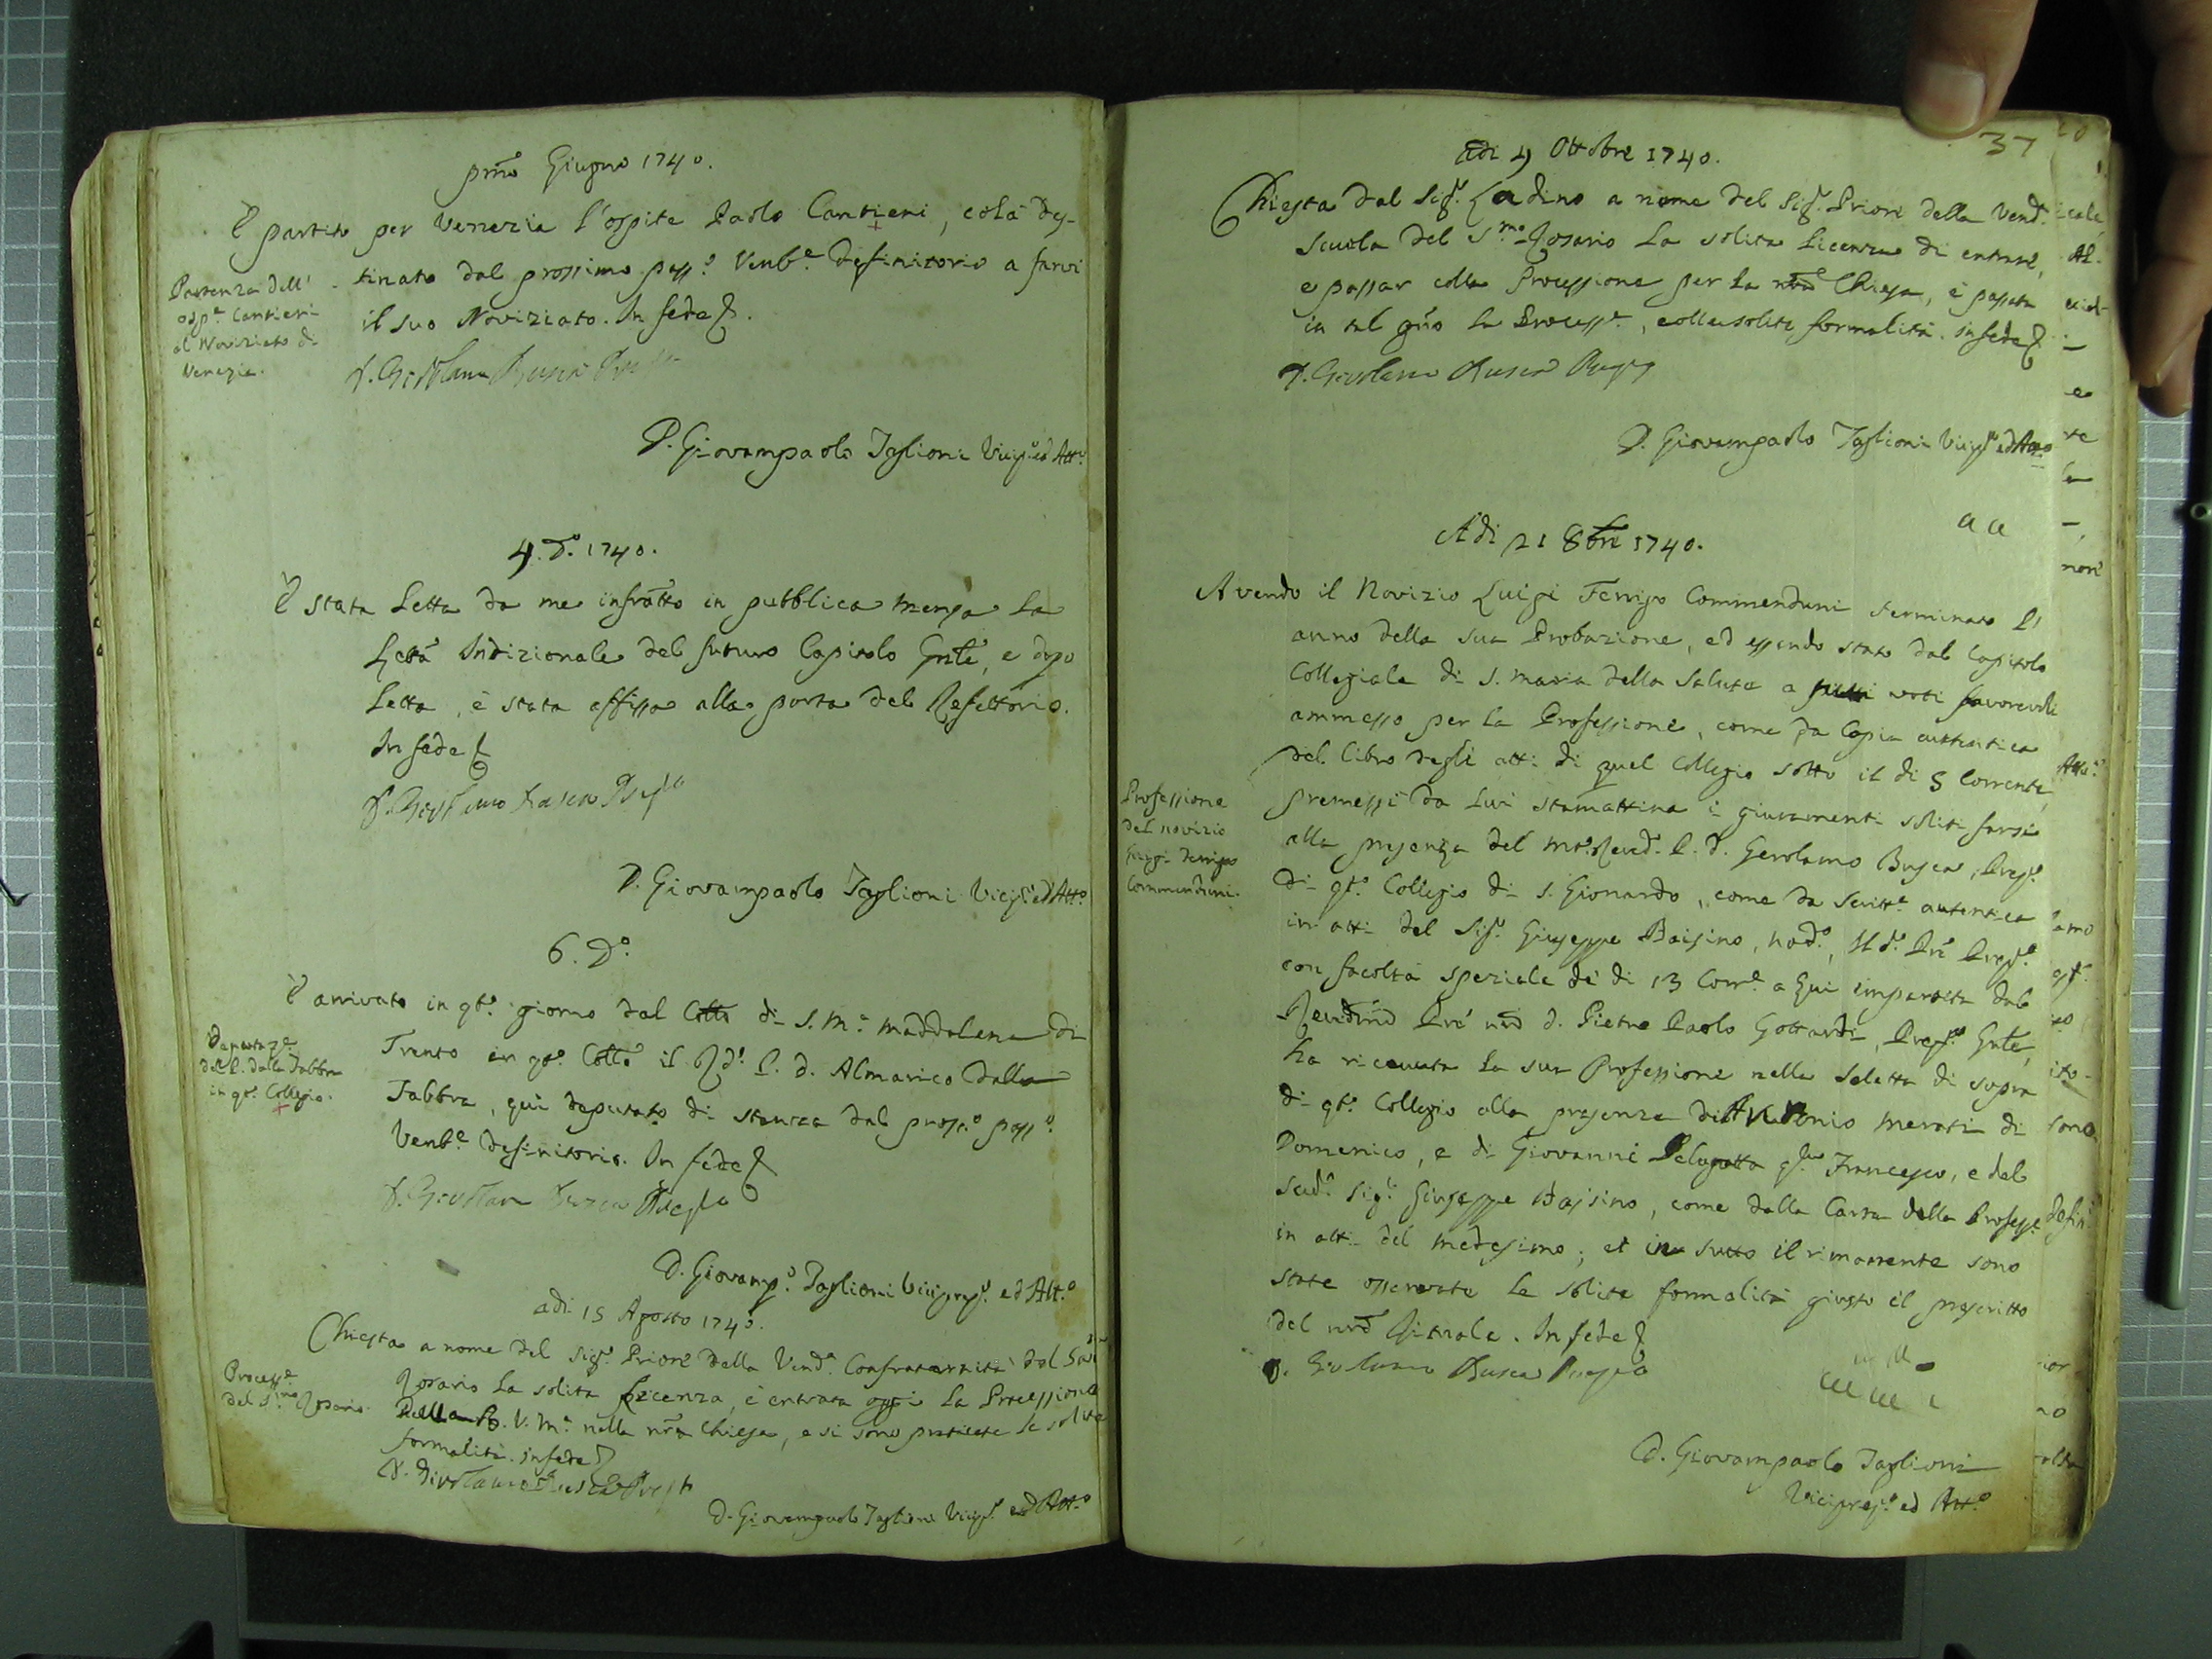 pmo Giugno 1740.
È partito per Venezia l'ospite Paolo Cantieni, colà des-
tinato dal prossimo pass.o Venb.e Definitorio a farvi
il suo Noviziato. In fede
Partenza dell'
osp.e Cantieni
al Noviziato di
Venezia.
D. Girolamo Rusca
D. Giovampaolo Taglioni Vicip.o ed Att.o
4. D.o 1740.
È stata letta da me infratto in pubblica mensa la
Lettã Indizionale del futuro Capitolo Gnlẽ, e dopo
letta, è stata affissa alla porta del Refettorio.
In fede
D. Girolamo Rusca Prep.to
D. Giovampaolo Taglioni Vicip.o ed Att.o
6. D.o
È arrivato in qto. giorno dal Collo di S. M.a Maddalena di
Trento in qto. Collo il Rd.o P. D. Almarico Dalla
Fabbra, qui deputato di stanza dal pross.o pass.o
Venb.e Definitorio. In fede
del P. dalla Fabbra
in qto. Collegio.
D. Girolamo Rusca Prep.to
D. Giovamp.o Taglioni Viciprep.o ed Att.o
adi 15 Agosto 1740.
Chiesta a nome del Sig.r Priore della Vend.a Confraternità del
Rosario la solita licenza, è entrata oggi la Processione
Della B. V. M.a nella nrã Chiesa, e si sono praticate le solite
formalità. in fede
Process.e
del S.mo Rosario.
D. Girolamo Rusca Prep.to
D. Giovampaolo Taglioni Vicip.o ed Att.o
37
adi 4 Ottobre 1740.
Chiesta dal Sig.r Ladino a nome del Sig.r Priore della Vend.a
Scuola del S.mo Rosario la solita licenza di entrare,
e passar colla Processione per la nrã Chiesa, è passata
in tal gno la Process.e, colle solite formalità. in fede
D. Girolamo Rusca Prep.to
D. Giovampaolo Taglioni Vicip.o ed Att.o
Adi 21 8bre 1740.
Avendo il Novizio Luigi Terzigo Commenduni terminato l'
anno della sua Probazione, ed essendo stato dal Capitolo
Collegiale di S. Maria della Salute a tutti voti favorevoli
ammesso per la Professione, come da Copia autentica
del libro degli atti di quel Collegio sotto il di 5 corrente,
premessi da lui stamattina i giuramenti soliti farsi
alla presenza del Mto. Revd. P. D. Gerolamo Rusca, Prep.o
di qto. Collegio di S. Lionardo, come da Scritt.a autentica
in atti del Sig.r Giuseppe Baisino, nod.o, Il d.o Prẽ Prep.o
con facoltà speziale de di 13 Corr.e a Lui impartita dal
Revdmo Prẽ nrõ D. Pietro Paolo Gottardi, Prep.o Gnlẽ,
ha ricevuta la sua Professione nella Saletta di sopra
di qto. Collegio alla presenza di Antonio Merati di
Domenico, e di Giovanni Pelagatta q.m Francesco, e del
sud.o Sig.r Giuseppe Baisino, come dalla Carta della Profess.e
in atti del medesimo; et in tutto il rimanente sono
state osservate le solite formalità giusto il prescritto
del nrõ Rituale. In fede
Professione
del novizio
Luigi Terzigo
Commenduni.
D. Girolamo Rusca Prep.to
D. Giovampaolo Taglioni
Viciprep.o ed Att.o